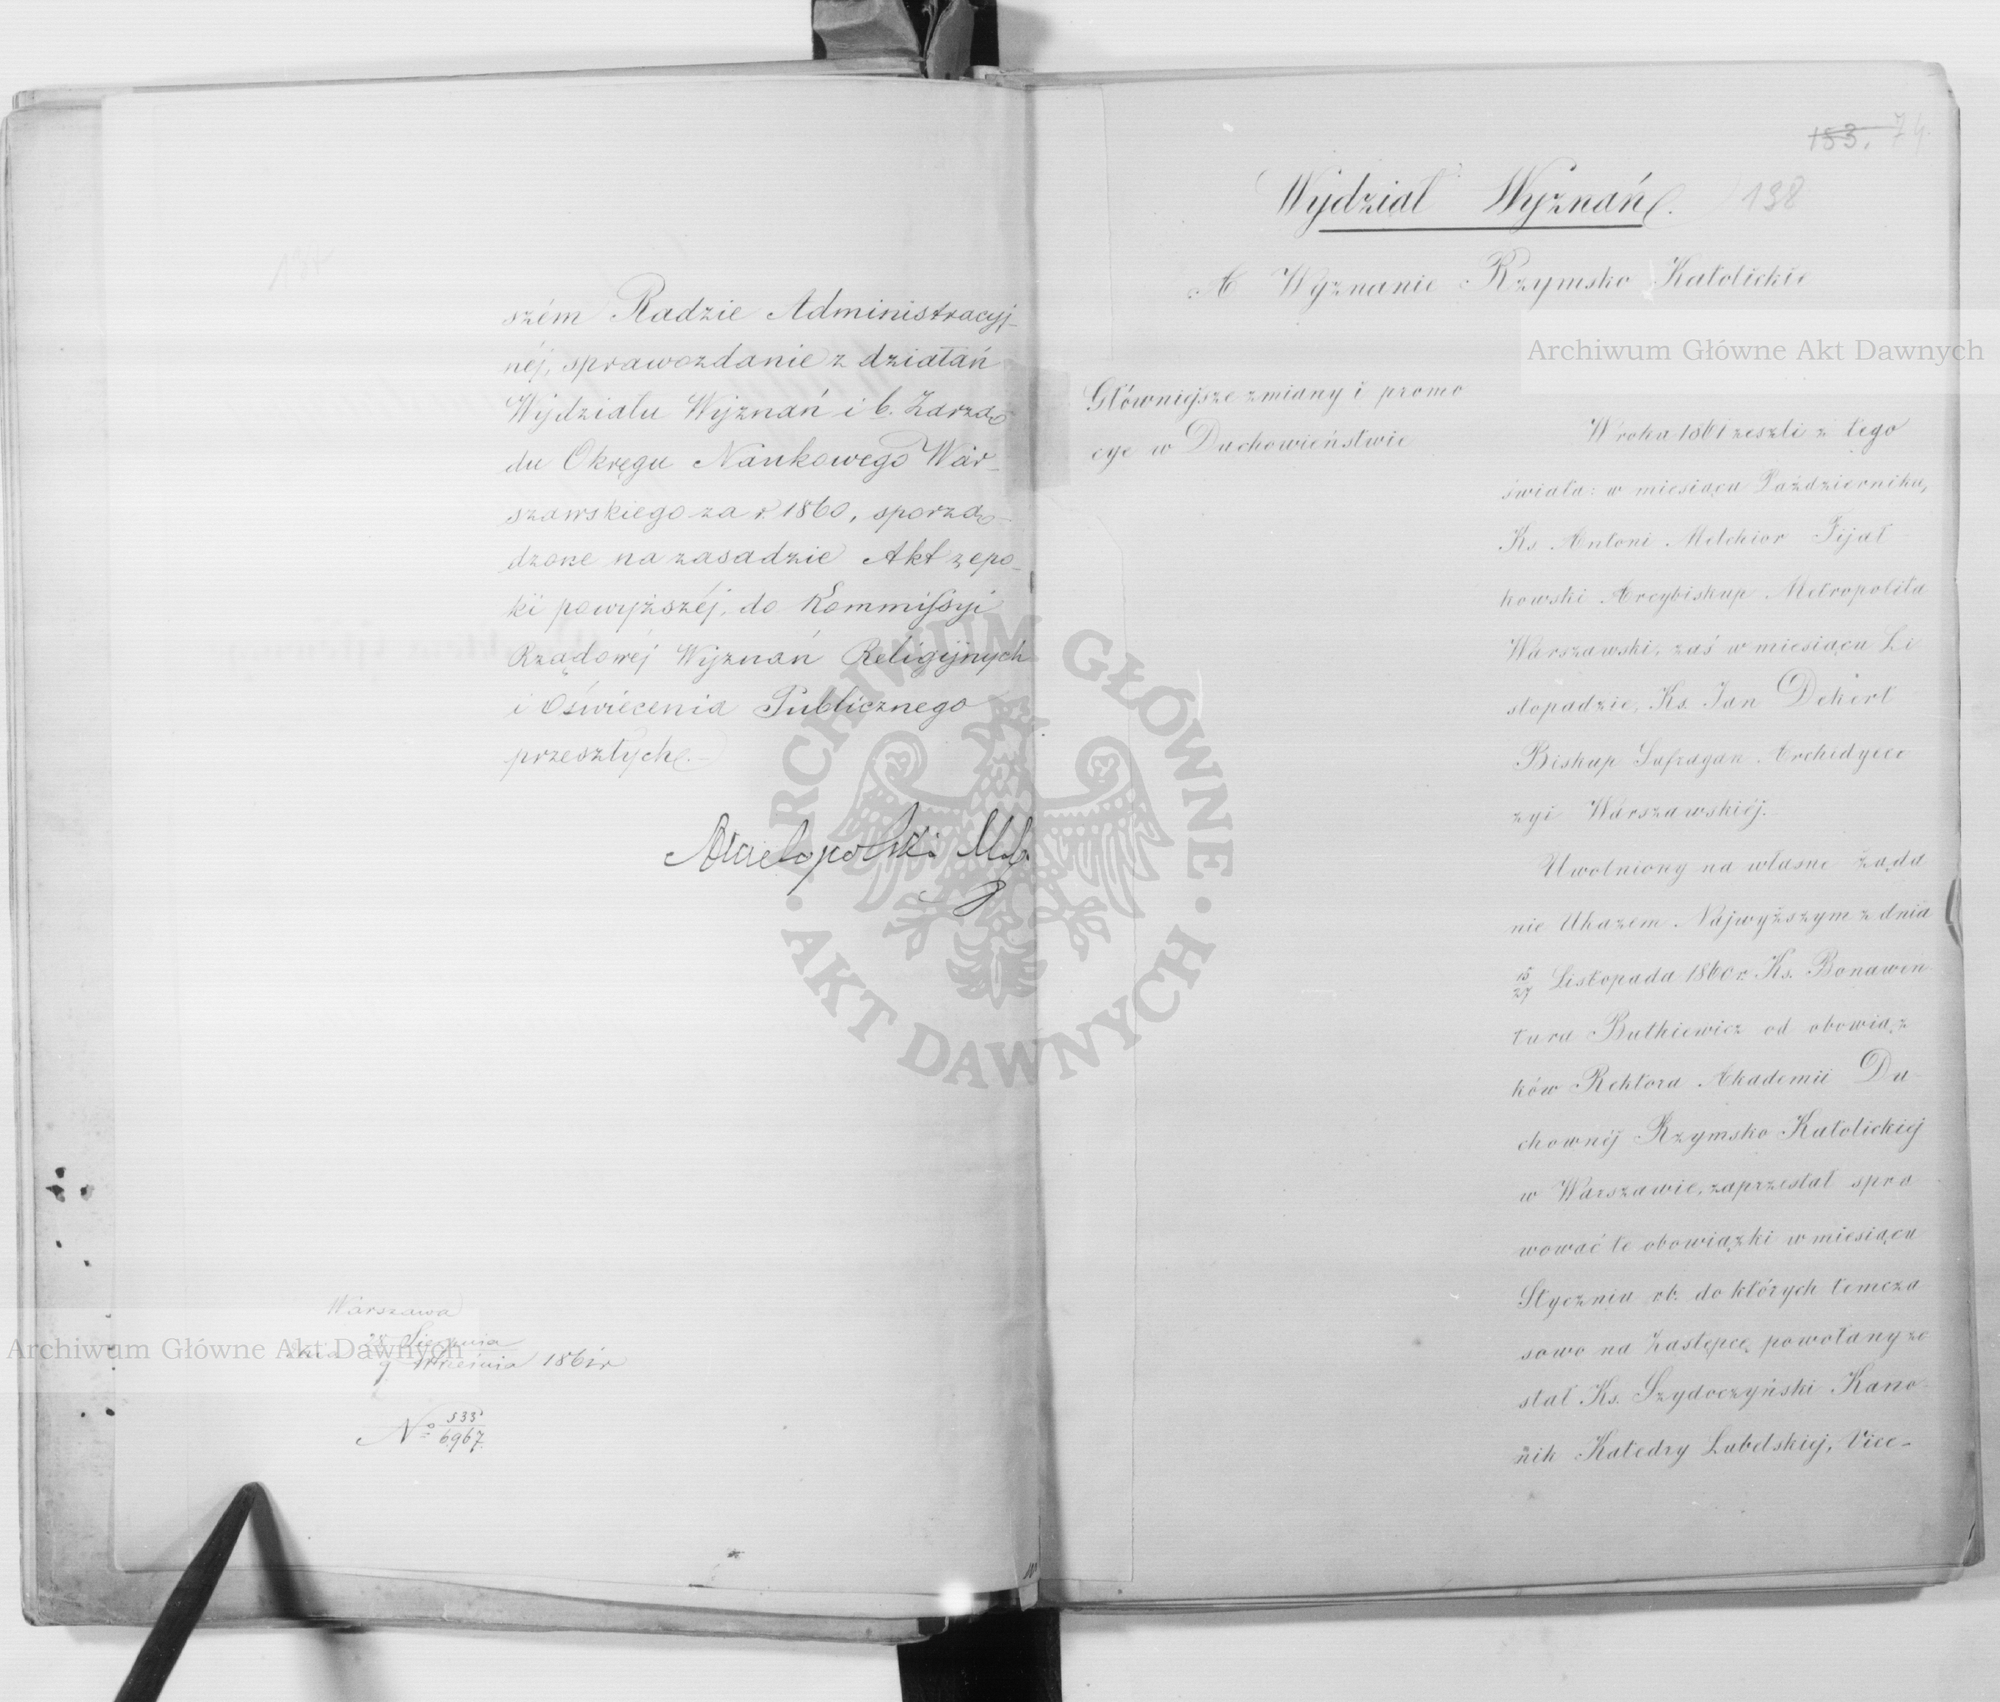 szém Radzie Administracyj-
néj, sprawozdanie z działań
Wydziału Wyznań i b. Zarzą-
du Okręgu Naukowego War-
szawskiego za r. 1860, sporzą-
dzone na zasadzie Akt z epo-
ki powyższéj, do Kommissyi
Rządowéj Wyznań Religijnych
i Oświecenia Publicznego
przeszłych.
Wielopolski
Warszawa
dnia 28 Sierpnia
9 Września 1861 r
№ 533
6967
153. 74.
138
Wydział Wyznań.
A Wyznanie Rzymsko Katolickie
Główniejsze zmiany i promo
cye w Duchowieństwie
W roku 1861 zeszli z tego
świata: w miesiącu Październiku,
Ks Antoni Melchior Fijał
kowski Arcybiskup Metropolita
Warszawski, zaś w miesiącu Li
stopadzie, Ks. Jan Dekert
Biskup Sufragan Archidyece
zyi Warszawskiéj.
Uwolniony na własne żąda
nie Ukazem Najwyższym z dnia
15/27 Listopada 1860 r. Ks. Bonawen
tura Butkiewicz od obowiąz
ków Rektora Akademii Du-
chownéj Rzymsko Katolickiéj
w Warszawie, zaprzestał spra
wować te obowiązki w miesiącu
Styczniu rb. do których tymcza
sowo na Zastępcę powołany zo
stał Ks. Szydoczyński Kano-
nik Katedry Lubelskiej, Vice-
Archiwum Główne Akt Dawnych
Archiwum Główne Akt Dawnych
ARCHIWUM GŁÓWNE · AKT DAWNYCH ·